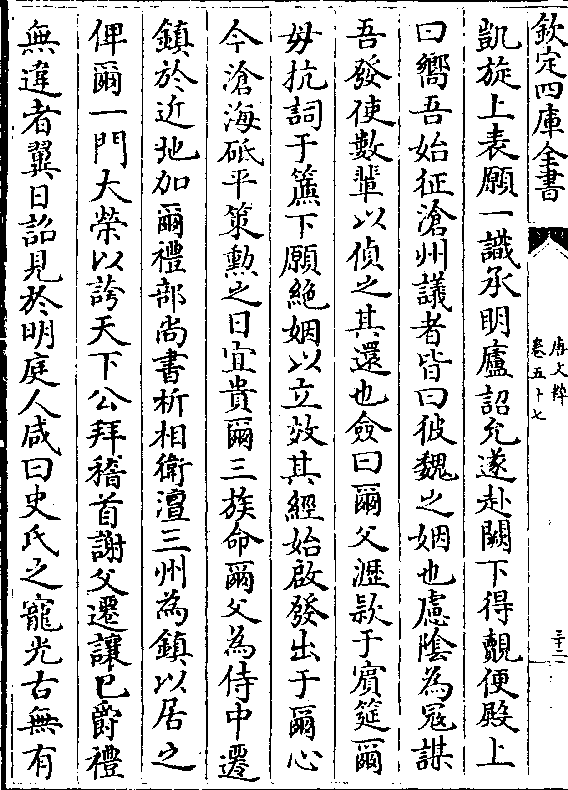 欽定四庫全書
唐文粹
卷五十七
三十二
凱旋上表願一識承明廬詔允遂赴闕下得覿便殿上
曰嚮吾始征滄州議者皆曰彼魏之姻也慮陰為冦謀
吾發使數輩以偵之其還也僉曰爾父瀝欵于賓筵爾
毋抗詞于簾下願絶姻以立效其經始啟發出于爾心
今滄海砥平策勲之日宜貴爾三族命爾父為侍中遷
鎮於近地加爾禮部尚書析相衛澶三州為鎮以居之
俾爾一門大榮以誇天下公拜稽首謝父遷讓已爵禮
無違者翼日詔見於明庭人咸曰史氏之寵光古無有